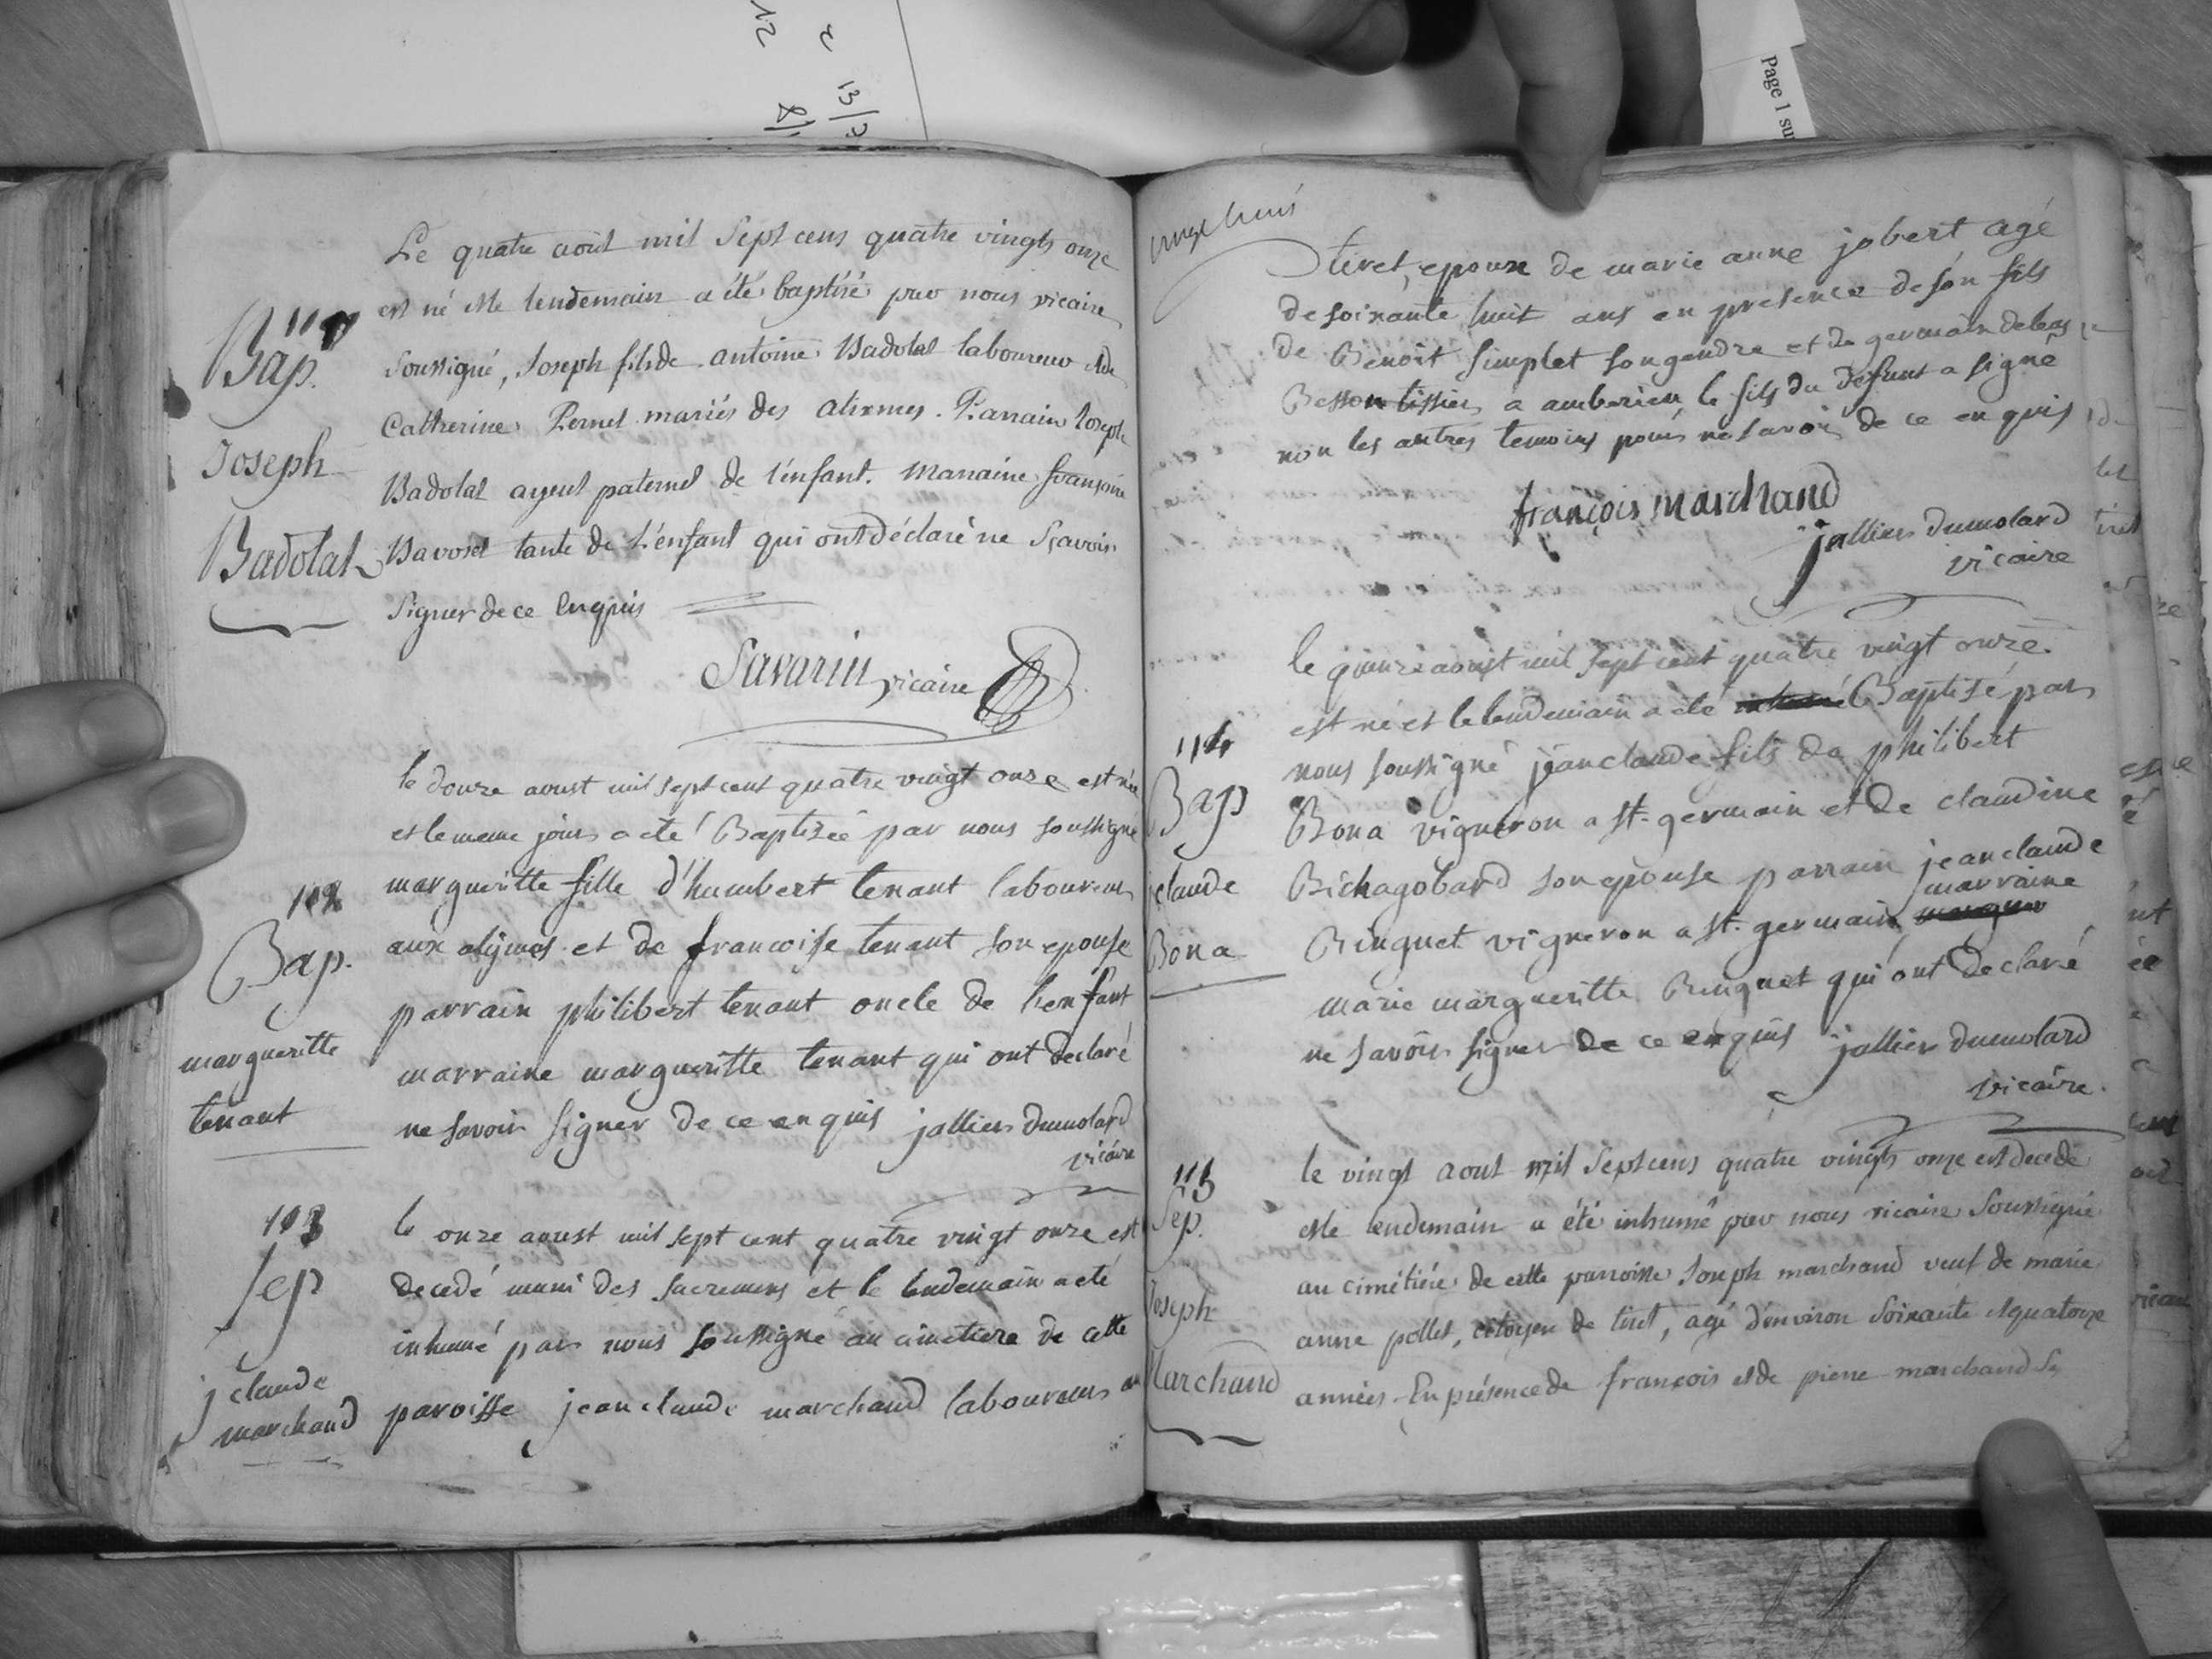 12
2
13/2
8/
Page 1 su
Le quatre août mil Sept cens quatre vingts onze
est né et le lendemain a été baptisé par nous vicaire
Soussigné, Joseph fils de antoine Badolat laboureur et de
Catherine Pernet mariés des alixmes. Parrain Joseph
Badolat ayeul paternel de l'enfant. Marraine françoise
tante de L'enfant qui ont déclaré ne Sçavoir
Signer de ce Enquis
Savarin vicaire
Bap.
Joseph
Badolat
le douze aoust mil sept cent quatre vingt onze est née
et le meme jour a eté Baptisée par nous soussigné
margueritte fille d'humbert tenant laboureur
aux alymes et de francoise tenant son epouse
parrain philibert tenant oncle de l'enfant
marraine margueritte tenant qui ont declaré
ne savoir signer de ce enquis jallier dumolard
vicaire
112
Bap.
margueritte
tenant
le onze aoust mil sept cent quatre vingt onze est
decedé muni des sacremens et le lendemain a eté
inhumé par nous soussigné au cimetiere de cette
paroisse jean claude marchand laboureur au
113
Sep
j claude
marchand
tiret, epoux de marie anne jobert agé
de soixante huit ans en presence de son fils
de Benoit simplet son gendre et de germain debeas
Besson tissier a amberieu le fils du defunt a signé
non les autres temoins pour ne savoir de ce enquis
françois marchand
jallier dumolard
vicaire
le quinze aoust mil sept cent quatre vingt onze.
est né et le lendemain a eté Baptisé par
nous soussigné jean claude fils de philibert
Bona vigneron a st. germain et de claudine
Bichagobard son epouse parrain jean claude
marraine
Ringuet vigneron a st. germain
marie margueritte Ringuet qui ont declaré
ne savoir signer de ce enquis jallier dumolard
vicaire.
114
Bap
jclaude
Bona
le vingt aout mil Sept cens quatre vingts onze est decede
et le lendemain a été inhumé par nous vicaire Soussigné
au cimétière de cette parroisse Joseph marchand veuf de marie
anne pollet, citoyen de tiret, agé d'environ Soixante et quatorze
années. En présence de françois et de pierre marchand Se
115
Sep.
Joseph
Marchand